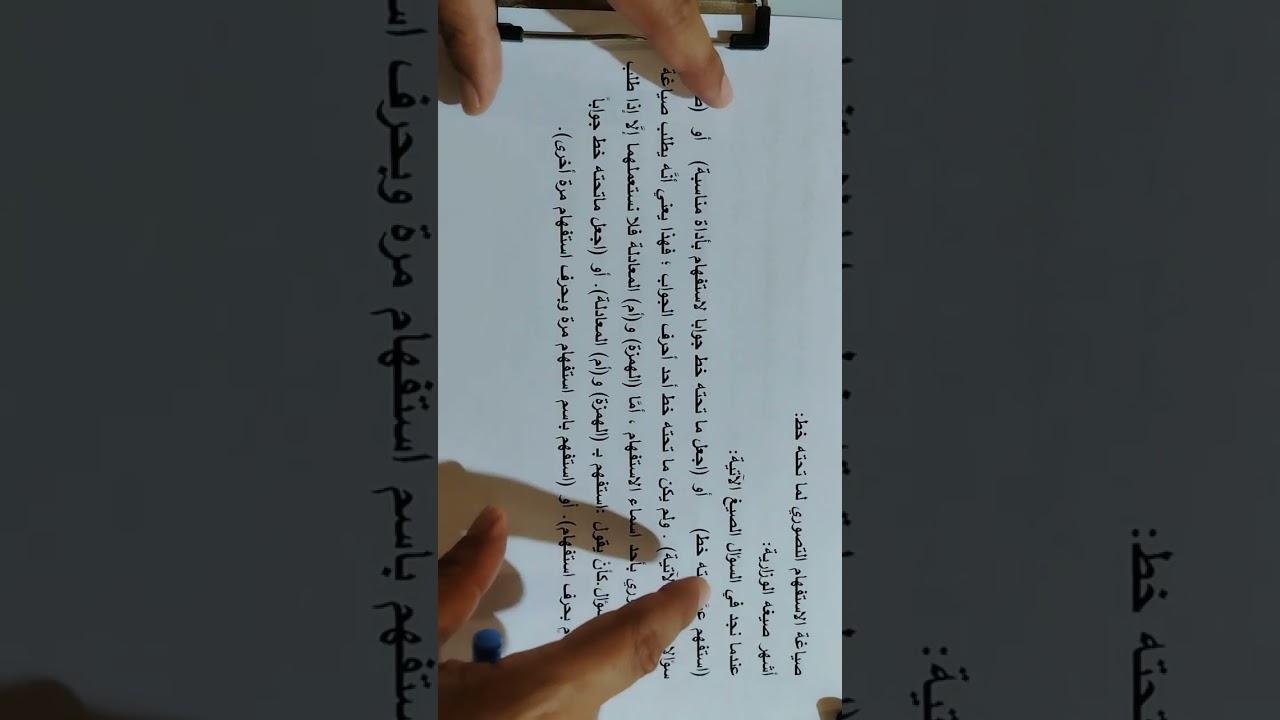 صياغة الاستفهام التصوري لما تحته خط:
أشهر صيغه الوزارية:
عندما نجد في السؤال الصيغ الآتية:
(استفهم تحته خط) أو (اجعل ما تحته خط جوابا لاستفهام بأداة مناسبة) أو
سؤالا الآتية) . ولم يكن ما تحته خط أحد أحرف الجواب ؛ فهذا يعني أنَّه يطلب صياغة
بأحد اسماء الاستفهام ، أمَّا (الهمزة) و(أم) المعادلة فلا نستعملهما إلَّا إذا طلب
كأنْ يقول :استفهم بـ (الهمزة) و(أم) المعادلة). أو (اجعل ماتحته خط جواباً
بحرف استفهام). أو (استفهم باسم استفهام مرة وبحرف استفهام مرة أخرى).